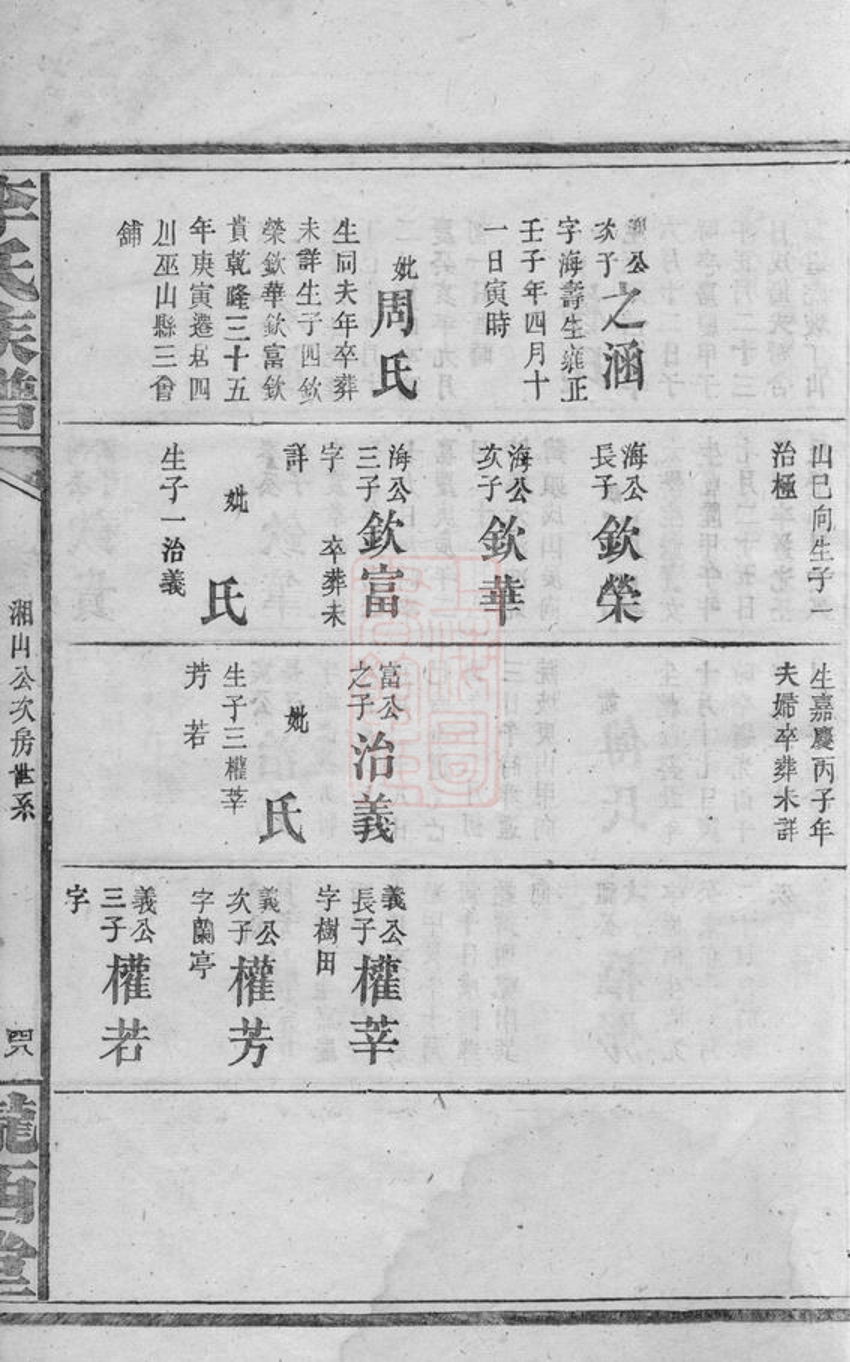 公
次子
之涵
字海壽生雍正
壬子年四月十
一日寅時
妣
周氏
生同夫年卒葬
未詳生子四欽
榮欽華欽富欽
貴乾隆三十五
年庚寅遷居四
川巫山縣三會
舖
山巳向生子一
治極
海公
長子
欽榮
海公
次子
欽華
海公
三子
欽富
字 卒葬未
詳
妣
氏
生子一治義
生嘉慶丙子年
夫婦卒葬未詳
富公
之子
治義
妣
氏
生子三權莘
芳若
義公
長子
權莘
字樹田
義公
次子
權芳
字蘭亭
義公
三子
權若
字
李氏族譜
湘山公次房世系
四八
隴西堂